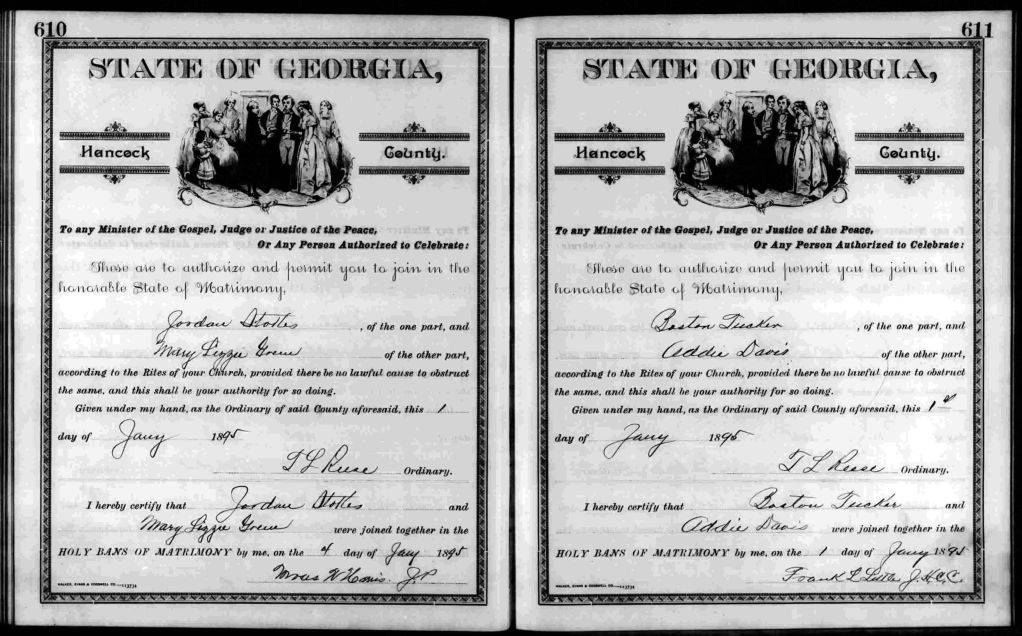 610
STATE OF GEORGIA,
Hancock County.
To any Minister of the Gospel, Judge or Justice of the Peace,
Or Any Person Authorized to Celebrate:
These are to authorize and permit you to join in the
honorable State of Matrimony,
Jordan Stokes, of the one part, and
Mary Lizzie Green of the other part,
according to the Rites of your Church, provided there be no lawful cause to obstruct
the same, and this shall be your authority for so doing.
Given under my hand, as the Ordinary of said County aforesaid, this 1
day of Jany 1895
T L Reese Ordinary.
I hereby certify that Jordan Stokes and
Mary Lizzie Green were joined together in the
HOLY BANS OF MATRIMONY by me, on the 4 day of Jany 1895
J.P
WALKER, EVANS & COGSWELL CO.
611
STATE OF GEORGIA,
Hancock County.
To any Minister of the Gospel, Judge or Justice of the Peace,
Or Any Person Authorized to Celebrate:
These are to authorize and permit you to join in the
honorable State of Matrimony,
Boston Tucker, of the one part, and
Addie Davis of the other part,
according to the Rites of your Church, provided there be no lawful cause to obstruct
the same, and this shall be your authority for so doing.
Given under my hand, as the Ordinary of said County aforesaid, this 1st
day of Jany 1895
T L Reese Ordinary.
I hereby certify that Boston Tucker and
Addie Davis were joined together in the
HOLY BANS OF MATRIMONY by me, on the 1 day of Jany 1895
Frank L Little J.H.C.C.
WALKER, EVANS & COGSWELL CO.